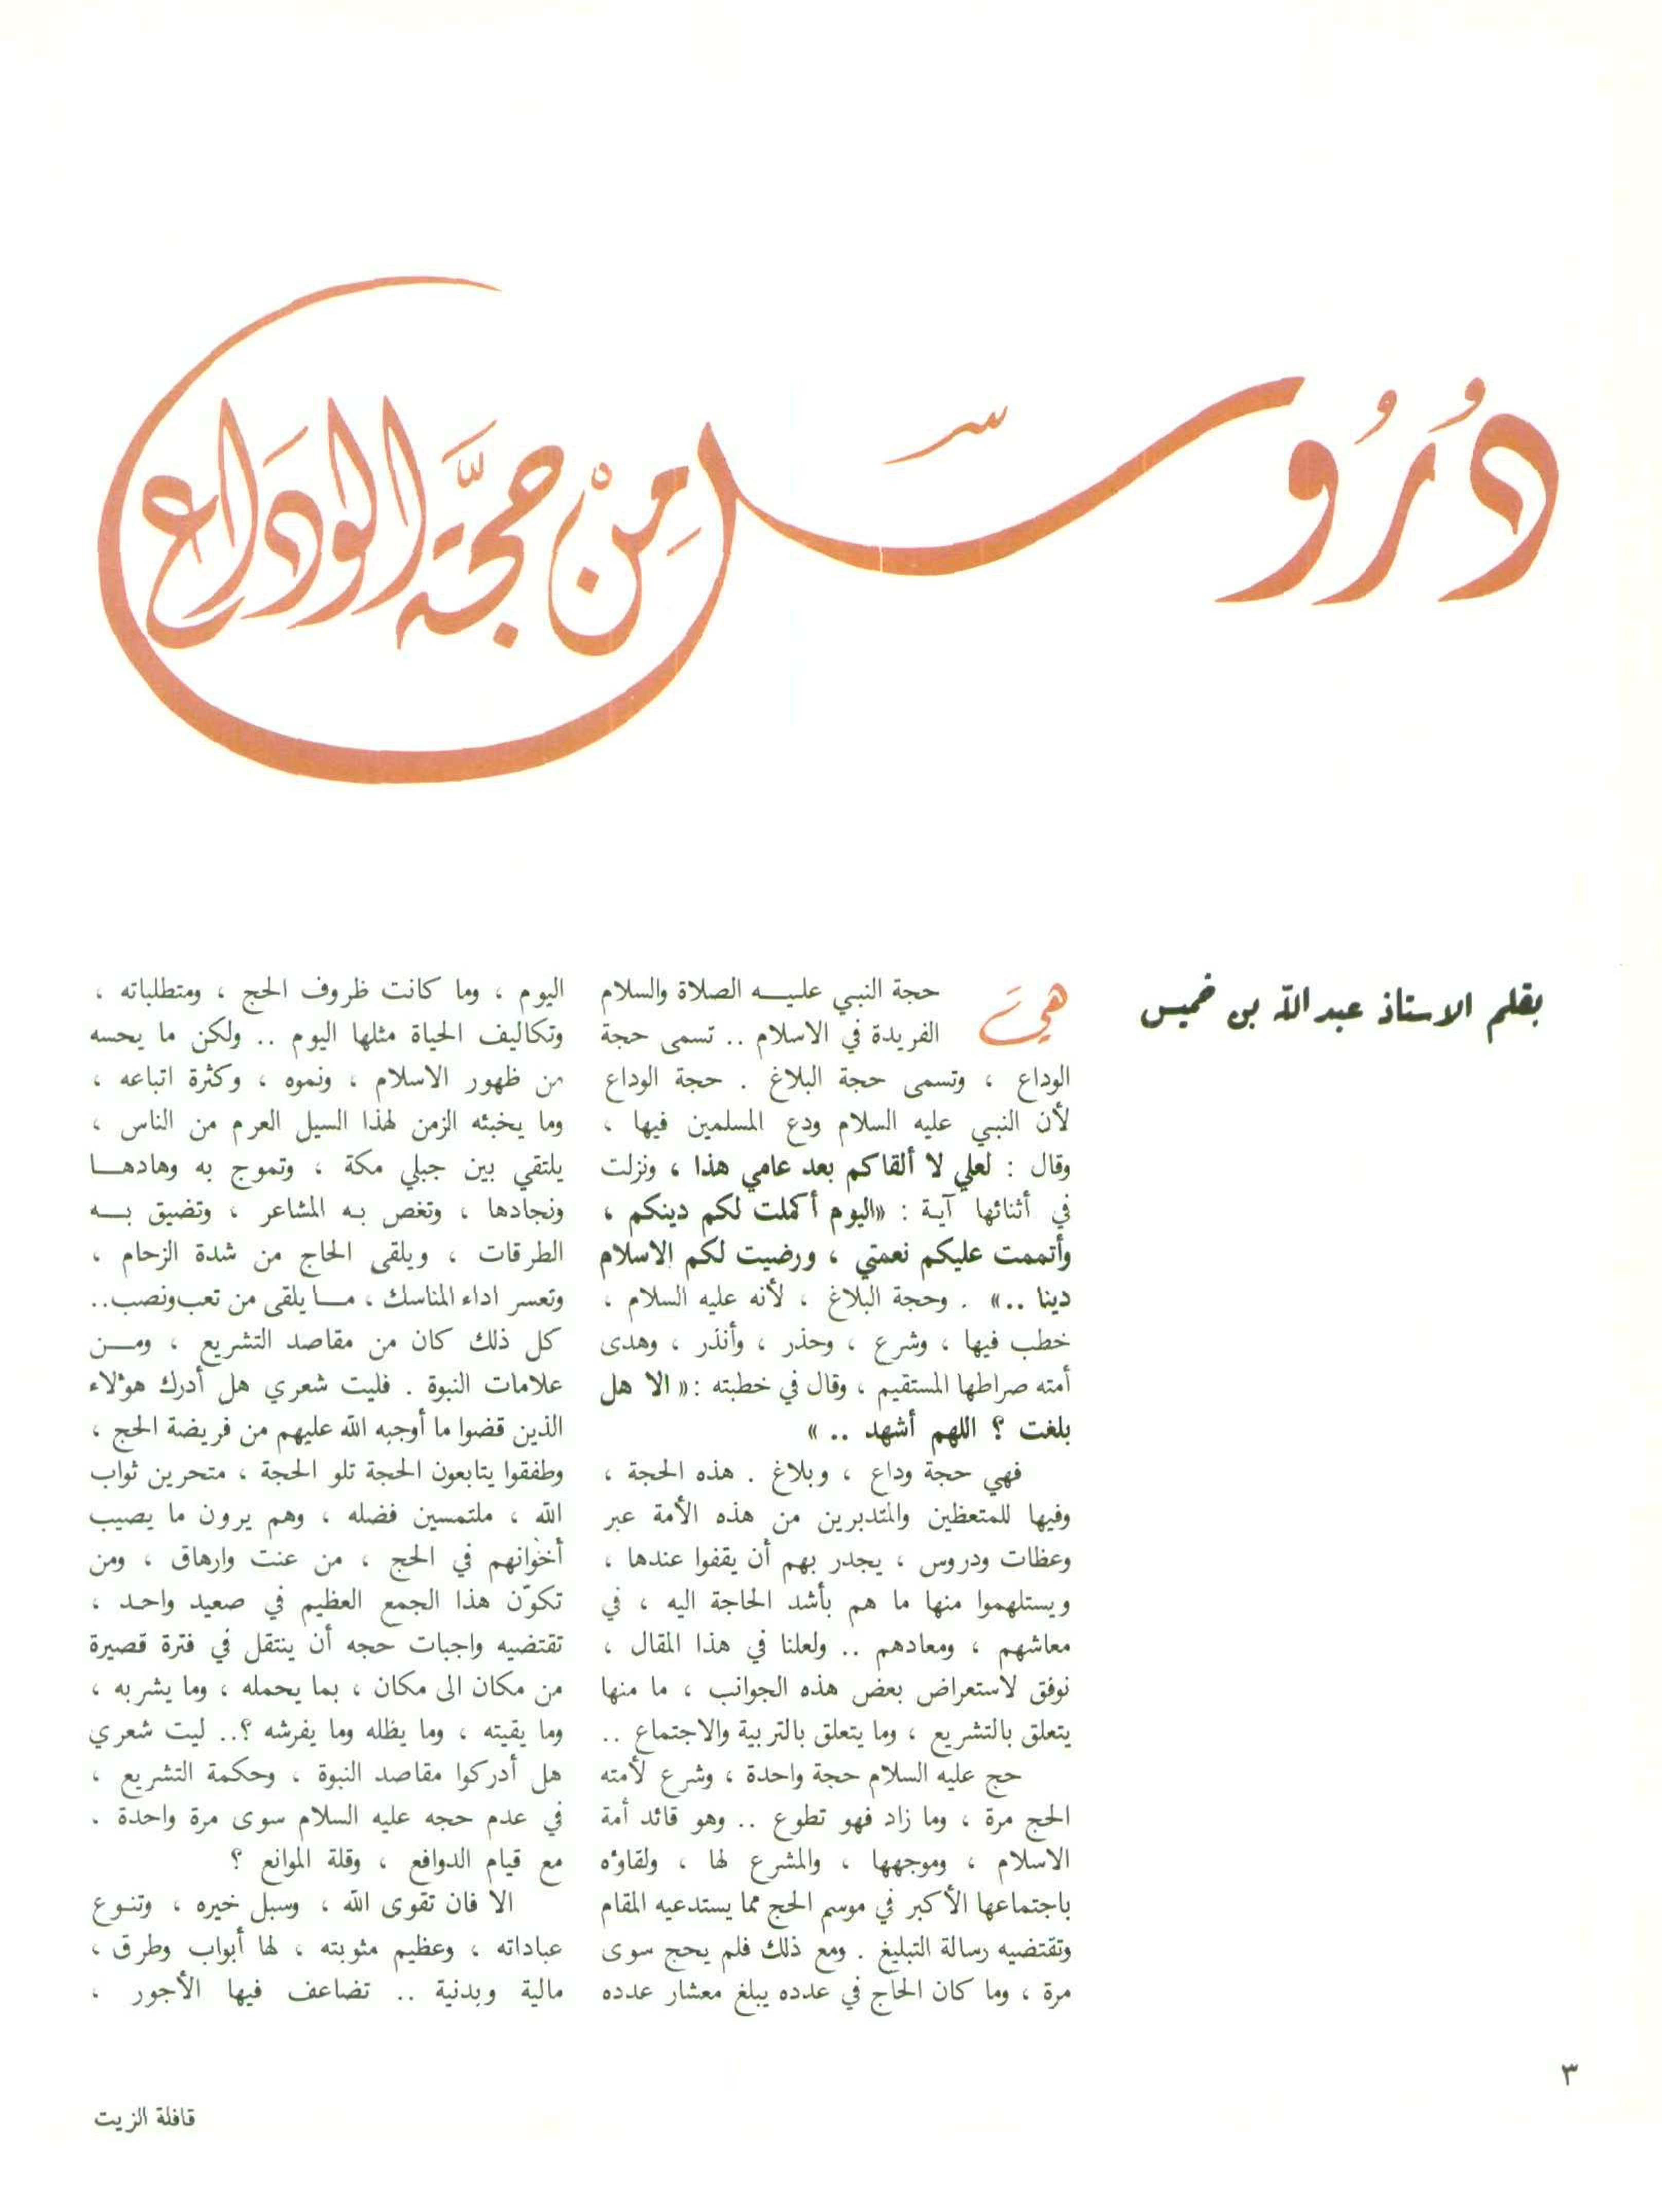 دُرُوس مِنْ حَجَّة الوَدَاع
بقلم الاستاذ عبد الله بن خميس
هيَ حجة النبي عليـــه الصلاة والسلام
الفريدة في الاسلام .. تسمى حجة
الوداع ، وتسمى حجة البلاغ . حجة الوداع
لأن النبي عليه السلام ودع المسلمين فيها ،
وقال : لعلي لا ألقاكم بعد عامي هذا ، ونزلت
في أثنائها آية : «اليوم أكملت لكم دينكم ،
وأتممت عليكم نعمتي ، ورضيت لكم الاسلام
دينا ..» . وحجة البلاغ ، لأنه عليه السلام ،
خطب فيها ، وشرع ، وحذر ، وأنذر ، وهدى
أمته صراطها المستقيم ، وقال في خطبته : « الا هل
بلغت ؟ اللهم أشهد .. »
فهي حجة وداع ، وبلاغ . هذه الحجة ،
وفيها للمتعظين والمتدبرين من هذه الأمة عبر
وعظات ودروس ، يجدر بهم أن يقفوا عندها ،
ويستلهموا منها ما هم بأشد الحاجة اليه ، في
معاشهم ، ومعادهم .. ولعلنا في هذا المقال ،
نوفق لاستعراض بعض هذه الجوانب ، ما منها
يتعلق بالتشريع ، وما يتعلق بالتربية والاجتماع ..
حج عليه السلام حجة واحدة ، وشرع لأمته
الحج مرة ، وما زاد فهو تطوع .. وهو قائد أمة
الاسلام ، وموجهها ، والمشرع لها ، ولقاؤه
باجتماعها الأكبر في موسم الحج مما يستدعيه المقام
وتقتضيه رسالة التبليغ . ومع ذلك فلم يحج سوى
مرة ، وما كان الحاج في عدده يبلغ معشار عدده
اليوم ، وما كانت ظروف الحج ، ومتطلباته ،
وتكاليف الحياة مثلها اليوم .. ولكن ما يحسه
من ظهور الاسلام ، ونموه ، وكثرة اتباعه ،
وما يخبئه الزمن لهذا السيل العرم من الناس ،
يلتقي بين جبلي مكة ، وتموج به وهادهـــا
ونجادها ، وتغص به المشاعر ، وتضيق بـــه
الطرقات ، ويلقى الحاج من شدة الزحام ،
وتعسر اداء المناسك ، مـــا يلقى من تعب ونصب..
كل ذلك كان من مقاصد التشريع ، ومـــن
علامات النبوة . فليت شعري هل أدرك هؤلاء
الذين قضوا ما أوجبه الله عليهم من فريضة الحج ،
وطفقوا يتابعون الحجة تلو الحجة ، متحرين ثواب
الله ، ملتمسين فضله ، وهم يرون ما يصيب
أخوانهم في الحج ، من عنت وارهاق ، ومن
تكوّن هذا الجمع العظيم في صعيد واحد ،
تقتضيه واجبات حجه أن ينتقل في فترة قصيرة
من مكان الى مكان ، بما يحمله ، وما يشربه ،
وما يقيته ، وما يظله وما يفرشه ؟.. ليت شعري
هل أدركوا مقاصد النبوة ، وحكمة التشريع ،
في عدم حجه عليه السلام سوى مرة واحدة .
مع قيام الدوافع ، وقلة الموانع ؟
الا فان تقوى الله ، وسبل خيره ، وتنوع
عباداته ، وعظيم مثوبته ، لها أبواب وطرق ،
مالية وبدنية .. تضاعف فيها الأجور ،
٣
قافلة الزيت